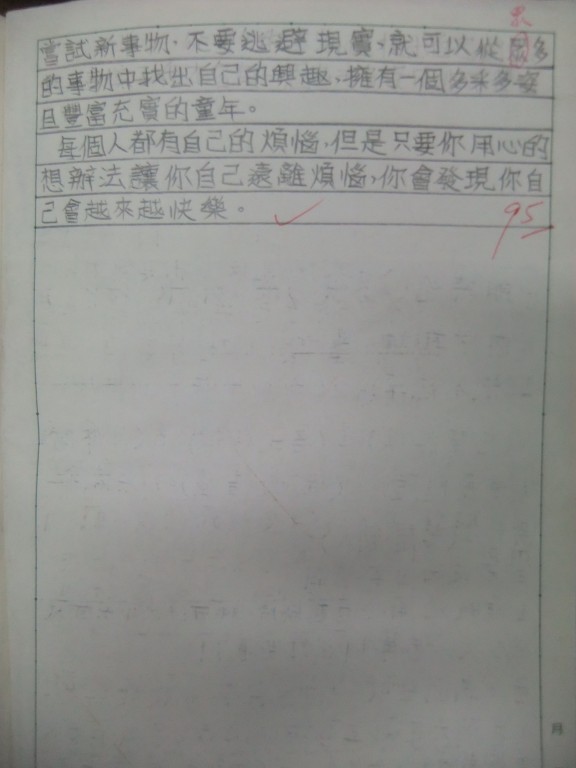 眾
嘗試新事物、不要逃避現實、就可以從 多
的事物中找出自己的興趣、擁有一個多采多姿
且豐富充實的童年。
每個人都有自己的煩惱,但是只要你用心的
想辦法讓你自己遠離煩惱,你會發現你自
己會越來越快樂。
95